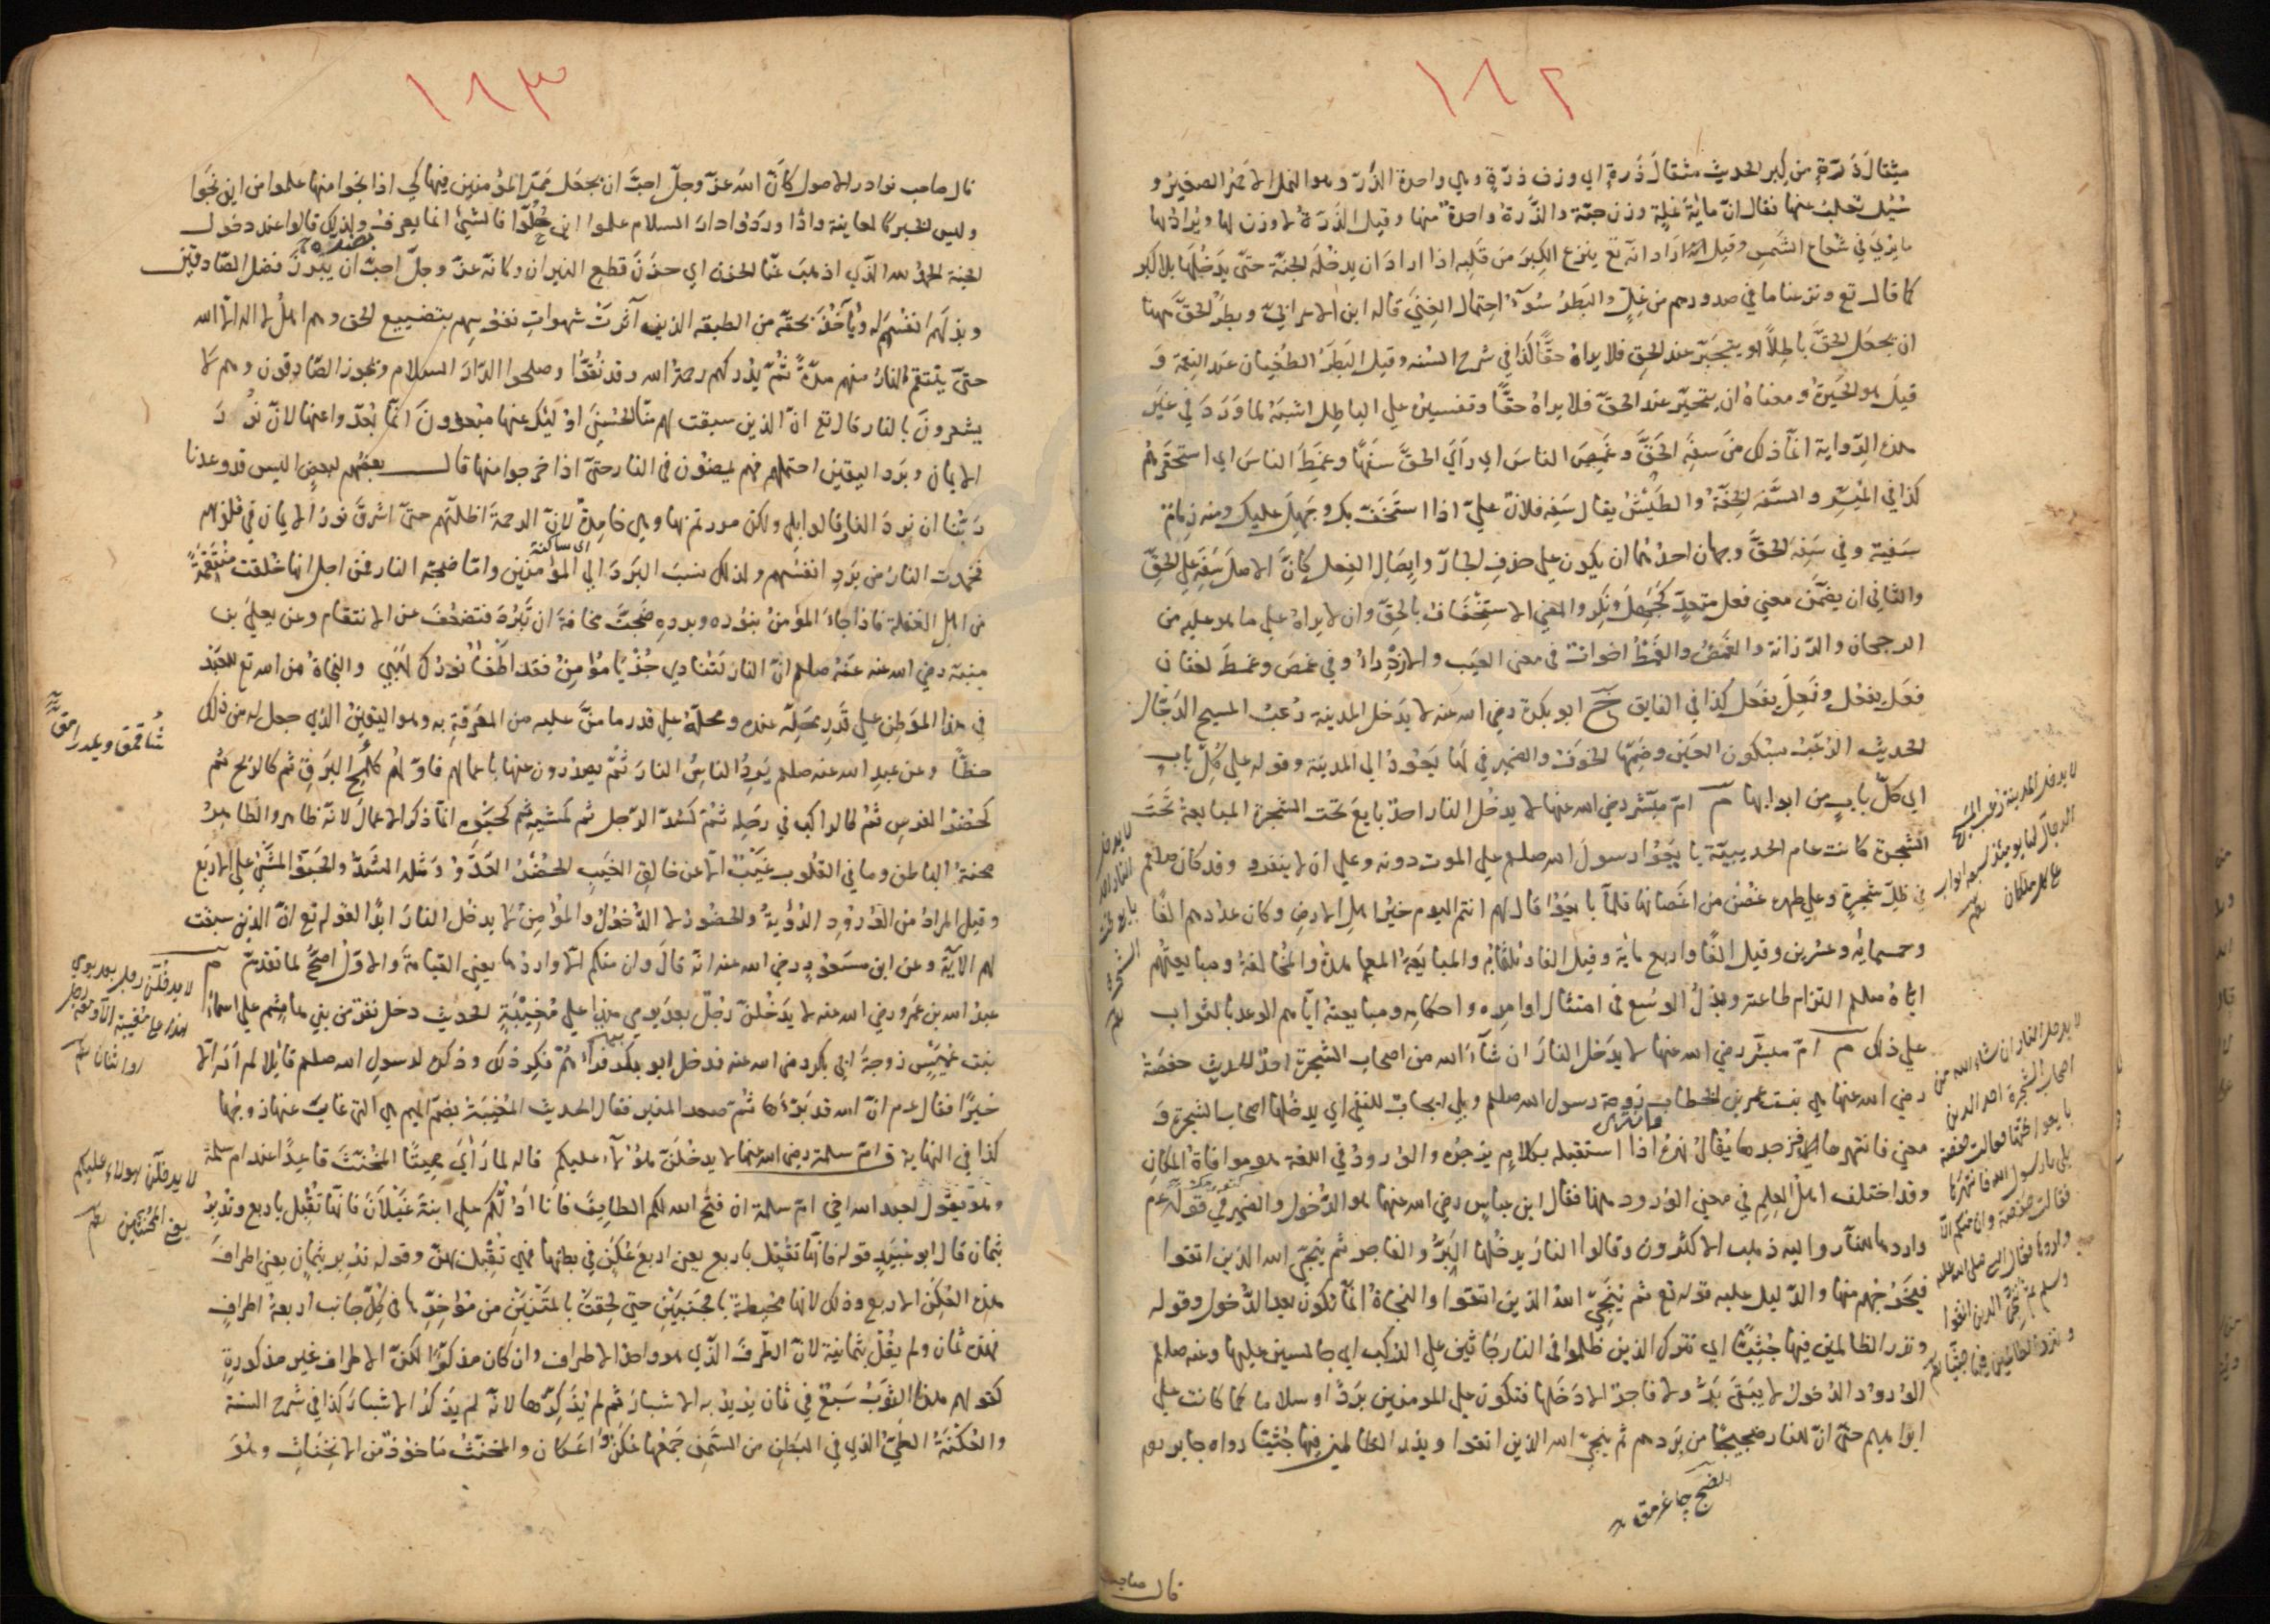 ١٦٢
مثقال ذرة من كبر الحديث مثقال ذرة اي وزن ذرة وهي واحدة الذر وهو النمل الاحمر الصغير و
سئل ثعلب عنها فقال ان ماية نملة وزن حبة والذرة واحدة منها وقيل الذرة لا وزن لها ويراد بها
ما يري في شعاع الشمس وقيل انه اراد انه تع ينزع الكبر من قلبه اذا اراد ان يدخله الجنة حتي يدخلها بلا كبر
كما قال تع ونزعنا ما في صدورهم من غل والبطر سوء احتمال الغني قاله ابن الاعرابي وبطر الحق ههنا
ان يجعل الحق باطلا او يتجبر عند الحق فلا يراه حقا كذا في شرح السنه وقيل البطر الطغيان عند النعمة و
قيل هو الحيرة ومعناه ان يتحير عند الحق فلا يراه حقا وتفسيره علي الباطل اشبه لما ورد في غير
هذه الرواية انما ذلك من سفه الحق وغمص الناس اي راي الحق سفها وغمط الناس اي استحقرهم
كذا في الميسر والسفه الخفة والطيش يقال سفه فلان علي اذا استخف بك وجهل عليك ومنه زمام
سفيه وفي سفه الحق وجهان احدهما ان يكون علي حذف الجار وايصال الفعل كان الاصل سفه علي الحق
والثاني ان يضمن معني فعل متعد كجهل ونكر والمعني الاستخفاف بالحق وان لا يراه علي ما هو عليه من
الرجحان والرزانة والغمص والغمط اخوان في معني العيب والازدراء وفي غمص وغمط لغتان
فعل يفعل وفعل يفعل كذا في الفايق خ ابو بكرة رضي الله عنه لا يدخل المدينة رعب المسيح الدجال
الحديث الرعب بسكون العين وضمها الخوف والضمير في لها يعود الي المدينة وقوله علي كل باب
اي كل باب من ابوابها م ام مبشر رضي الله عنها لا يدخل النار احد بايع تحت الشجرة المبايعة تحت
الشجرة كانت عام الحديبية بايعوا رسول الله صلعم علي الموت دونه وعلي ان لا يفروا وقد كان صلعم
في ظل شجرة وعلي ظهره غصن من اغصانها فلما بايعوا قال لهم انتم اليوم خير اهل الارض وكان عددهم الفا
وخمسماية وعشرين وقيل الفا واربع ماية وقيل الفا وثلثماية والمبايعة المعاهدة والمخالفة ومبايعتهم
اياه صلعم التزام طاعته وبذل الوسع في امتثال اوامره واحكامه ومبايعته اياهم الوعد بالثواب
علي ذلك م ام مبشر رضي الله عنها لا يدخل النار ان شاء الله من اصحاب الشجرة احد الحديث حفصة
رضي الله عنها هي بنت عمر بن الخطاب زوجة رسول الله صلعم وبلي ايجاب للنفي اي يدخلها اصحاب الشجرة و
معني فانتهرها اي فزجرها يقال نهره اذا استقبله بكلام يزجره والورود في اللغة هو موافاة المكان
وقد اختلف اهل العلم في معني الورود ههنا فقال ابن عباس رضي الله عنهما هو الدخول والضمير في قوله عم
واردها للنار واليه ذهب الاكثرون وقالوا النار يدخلها البر والفاجر ثم ينجي الله الذين اتقوا
فيخرجهم منها والدليل عليه قوله تع ثم ينجي الله الذين اتقوا والنجاة انما تكون بعد الدخول وقوله
ونذر الظالمين فيها جثيا اي نترك الذين ظلموا في النار جاثين علي الركب اي جالسين عليها وعنه صلعم
الورود الدخول لا يبقي بر ولا فاجر الا دخلها فتكون علي المومنين بردا وسلاما كما كانت علي
ابراهيم حتي ان للنار ضجيجا من بردهم ثم ينجي الله الذين اتقوا ويذر الظالمين فيها جثيا رواه جابر
لا يدخل المدينة رعب المسيح
الدجال لها يومئذ سبعة ابواب
علي كل باب ملكان
لا يدخل
النار احد
بايع تحت
الشجرة
لا يدخل النار ان شاء الله من
اصحاب الشجرة احد الذين
بايعوا تحتها فقالت حفصة
بلي يا رسول الله فانتهرها
فقالت حفصة وان منكم الا
واردها فقال النبي صلي الله عليه
وسلم ثم ننجي الذين اتقوا
ونذر الظالمين فيها جثيا
قال صاحب
١٦٣
قال صاحب نوادر الاصول كان الله عز وجل احب ان يجعل ممر المؤمنين فيها كي اذا نجوا منها علموا من اين نجوا
وليس الخبر كالمعاينة واذا وردوا دار السلام علموا اين حلوا فالشيئ انما يعرف بضده ولذلك قالوا عند دخول
الجنة الحمد لله الذي اذهب عنا الحزن اي حزن قطع النيران وكانه عز وجل احب ان يبرز فضل الصادقين
وبذلهم انفسهم له ويأخذ بحقه من الطبقة الذين آثرت شهوات نفوسهم بتضييع الحق وهم اهل لا اله الا الله
حتي ينتقم النار منهم مدة ثم يدركهم رحمة الله وقد نقوا وصلحوا لدار السلام ويجوز الصادقون وهم لا
يشعرون بالنار قال تع ان الذين سبقت لهم منا الحسني اوليك عنها مبعدون انما بعدوا عنها لان نور
الايمان وبرد اليقين احتملهم فهم يمضون في النار حتي اذا خرجوا منها قال بعضهم لبعض اليس قد وعدنا
ربنا ان نرد النار قالوا بلي ولكن مررتم بها وهي خامدة لان الرحمة اظلتهم حتي اشرق نور الايمان في قلوبهم
فخمدت النار من برد انفسهم ولذلك نسب البرد الي المؤمنين واما ضجة النار فمن اجل انها خلقت منتقمة
من اهل الغفلة فاذا جاء المؤمن بنوره وبرده ضجت مخافة ان تبرد فتضعف عن الانتقام وعن يعلي بن
منية رضي الله عنه عنه صلعم ان النار لتنادي جز يا مؤمن فقد اطفا نورك لهبي والنجاة من الله تع للعبد
في هذا الموطن علي قدر محله عنده ومحله علي قدر ما من عليه من المعرفة به وهو اليقين الذي جعل له من ذلك
حظا وعن عبد الله عنه صلعم يرد الناس النار ثم يصدرون عنها باعمالهم فاولهم كلمح البرق ثم كالريح ثم
كحضر الفرس ثم كالراكب في رحله ثم كشد الرجل ثم كمشيه ثم كحبوه انما ذكر الاعمال لانه ظاهر والظاهر
محنة الباطن وما في القلوب غيب الا عن خالق الغيب الحضر العدو ومثله الشد والحبو المشي علي الاربع
وقيل المراد من الورود الرؤية والحضور لا الدخول والمؤمن لا يدخل النار ابدا لقوله تع ان الذين سبقت
لهم الآية وعن ابن مسعود رضي الله عنه انه قال وان منكم الا واردها يعني القيامة والاول اصح لما تقدم م
عبد الله بن عمرو رضي الله عنه لا يدخلن رجل بعد يومي هذا علي مغيبة الحديث دخل نفر من بني هاشم علي اسماء
بنت عميس زوجة ابي بكر رضي الله عنه فدخل ابو بكر فرآهم فكره ذلك وذكر لرسول الله صلعم قايلا لم ار الا
خيرا فقال عم ان الله قد برأها ثم صعد المنبر فقال الحديث المغيبة بضم الميم هي التي غاب عنها زوجها
كذا في النهاية ق ام سلمة رضي الله عنها لا يدخلن هؤلاء عليكم قاله لما راي هيتا المخنث قاعدا عند ام سلمة
وهو يقول لعبد الله اخي ام سلمة ان فتح الله لكم الطايف فانا ادلكم علي ابنة غيلان فانها تقبل باربع وتدبر
بثمان قال ابو عبيد قوله فانها تقبل باربع يعني اربع عكن في بطنها فهي تقبل بهن وقوله تدبر بثمان يعني اطراف
هذه العكن الاربع وذلك لانها محيطة بالجنبين حتي لحقت بالمتنين من مؤخرها في كل جانب اربعة اطراف
فهذه ثمان ولم يقل ثمانية لان الطرف الذي هو واحد الاطراف وان كان مذكرا لكن الاطراف غير مذكورة
كقولهم هذا الثوب سبع في ثمان يريد به الاشبار ثم لم يذكرها لانه لم يذكر الاشبار كذا في شرح السنة
والعكنة الطي الذي في البطن من السمن جمعها عكن واعكان والمخنث ماخوذ من الانخناث وهو
لا يدخلن رجل بعد يومي
هذا علي مغيبة الا ومعه رجل
او اثنان
لا يدخلن هؤلاء عليكم
يعني المخنثين